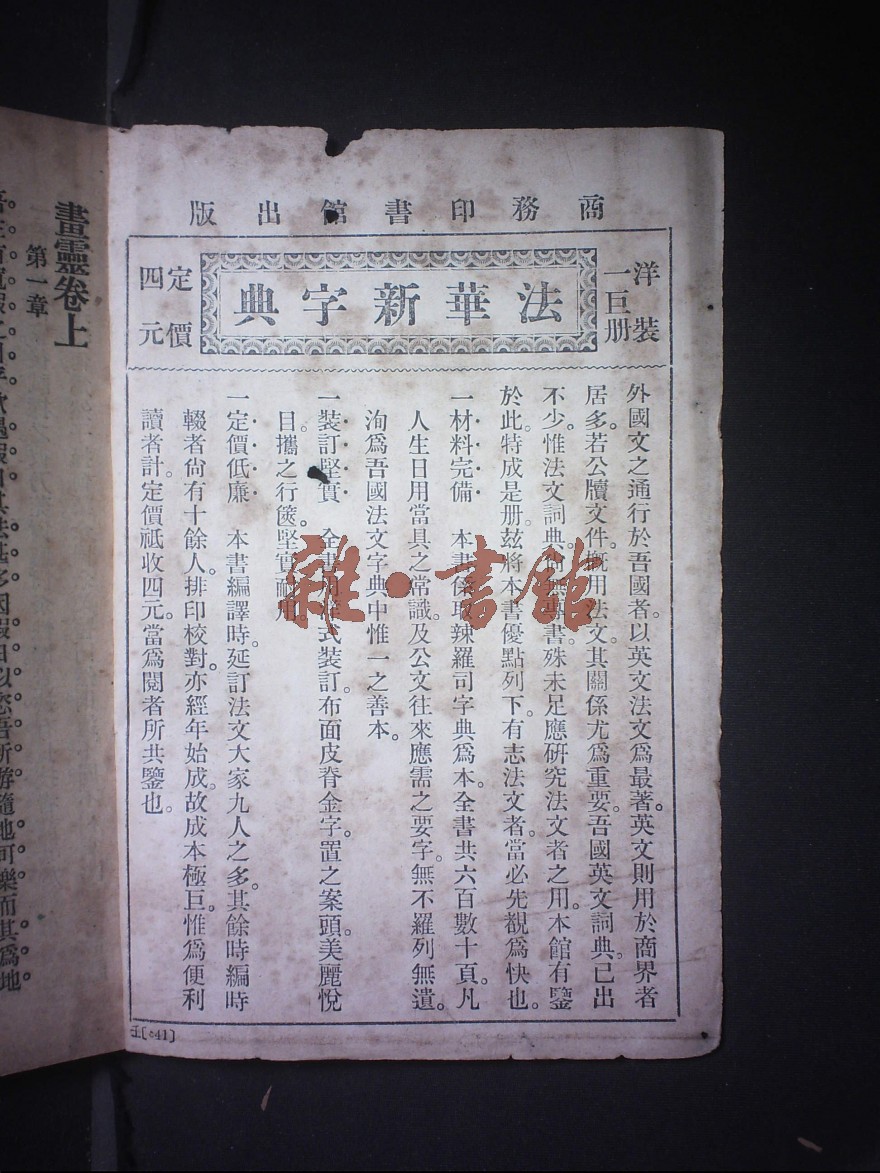 商務印書館出版
洋裝
一巨册
法華新字典
定價
四元
外國文之通行於吾國者。以英文法文爲最著。英文則用於商界者
居多。若公牘文件。槪用法文。其關係尤爲重要。吾國英文詞典。已出
不少。惟法文詞典。尙無專書。殊未足應硏究法文者之用。本館有鑒
於此。特成是册。玆將本書優點列下。有志法文者。當必先覩爲快也。
一材料完備　本書係取辣羅司字典爲本。全書共六百數十頁。凡
人生日用當具之常識。及公文往來應需之要字。無不羅列無遺。
洵爲吾國法文字典中惟一之善本。
一裝訂堅實　全書式裝訂。布面皮脊金字。置之案頭。美麗悅
目。攜之行篋。堅實耐用。
一定價低廉　本書編譯時。延訂法文大家九人之多。其餘時編時
輟者尙有十餘人。排印校對。亦經年始成。故成本極巨。惟爲便利
讀者計。定價祗收四元。當爲閱者所共鑒也。
畫靈卷上
第一章
雜·書館
[:41]